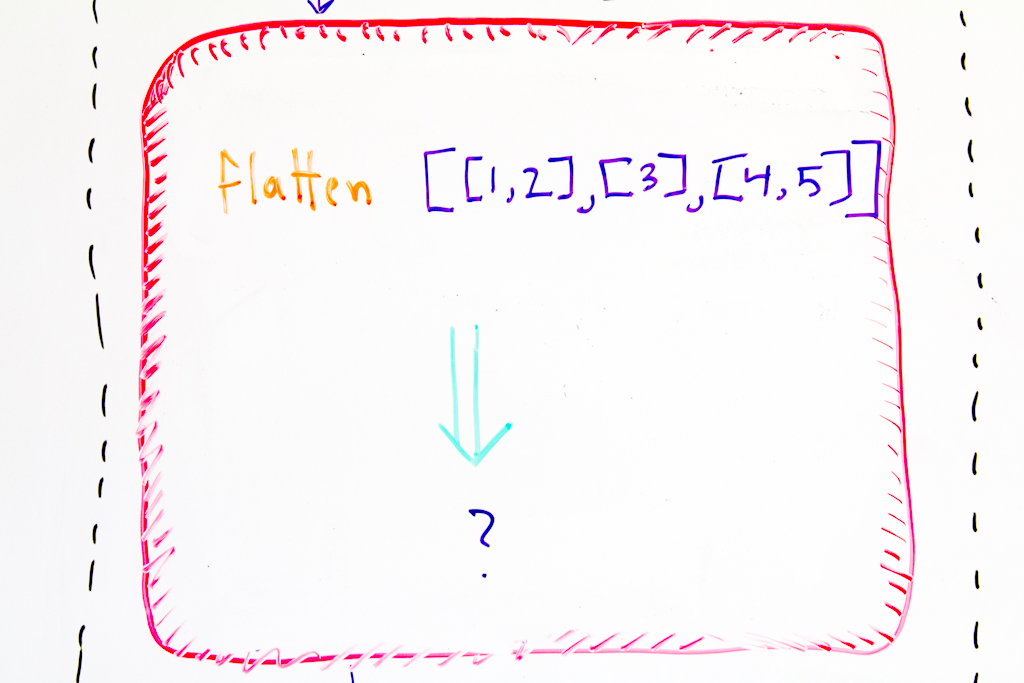 flatten [[1,2],[3],[4,5]]
?